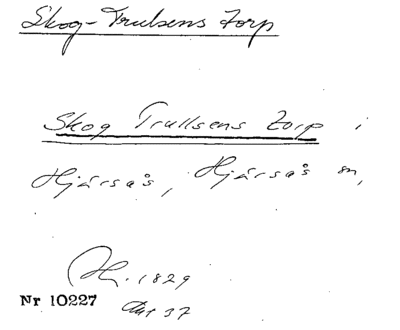 Skog-Trulsens Torp
Skog Trullsens Torp i
Hjärsås, Hjärsås sn,
H. 1829
Nr 10227
37